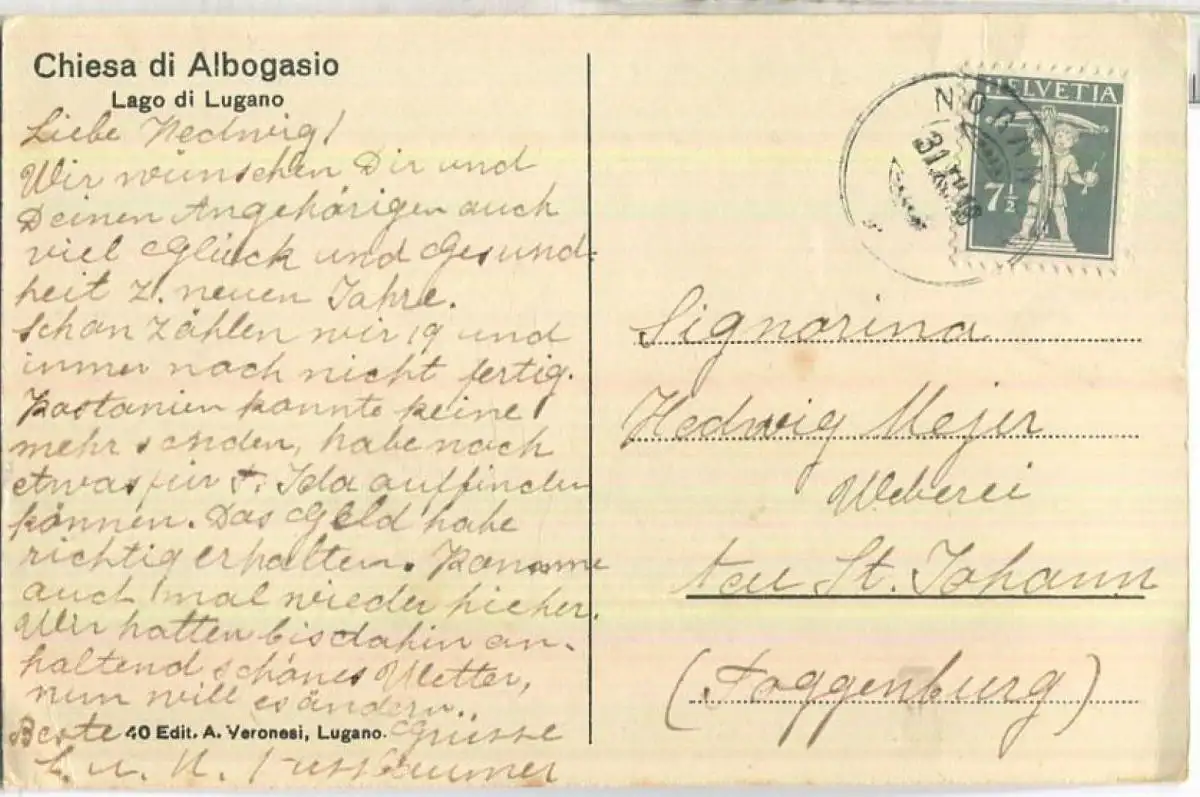 Chiesa di Albogasio
Lago di Lugano
Liebe Hedwig!
Wir wünschen Dir und
Deinen Angehörigen auch
viel Glück und Gesund-
heit z. neuen Jahre.
Schon zählen wir 19 und
immer noch nicht fertig.
Kastanien konnte keine
mehr senden, habe noch
etwas für Ida auffinden
können. Das Geld habe
richtig erhalten. Komme
auch 1mal wieder hieher.
Wir hatten bisdahin an-
haltend schönes Wetter,
nun will es ändern..
Beste Grüsse
40 Edit. A. Veronesi, Lugano.
u.
HELVETIA
7½
31
Signorina
Hedwig Mejer
Weberei
Neu St. Johann
(Toggenburg)